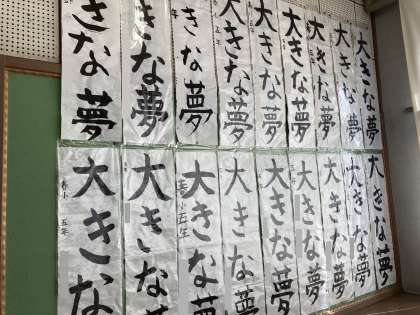 大きな夢
大きな夢
大きな夢
大きな夢
大きな夢
大きな夢
きな夢
大きな夢
きな夢
大きな夢
大きな夢
大きな夢
大きな夢
大きな夢
大きな夢
大きな夢
五年
大きな夢
大きな
五年